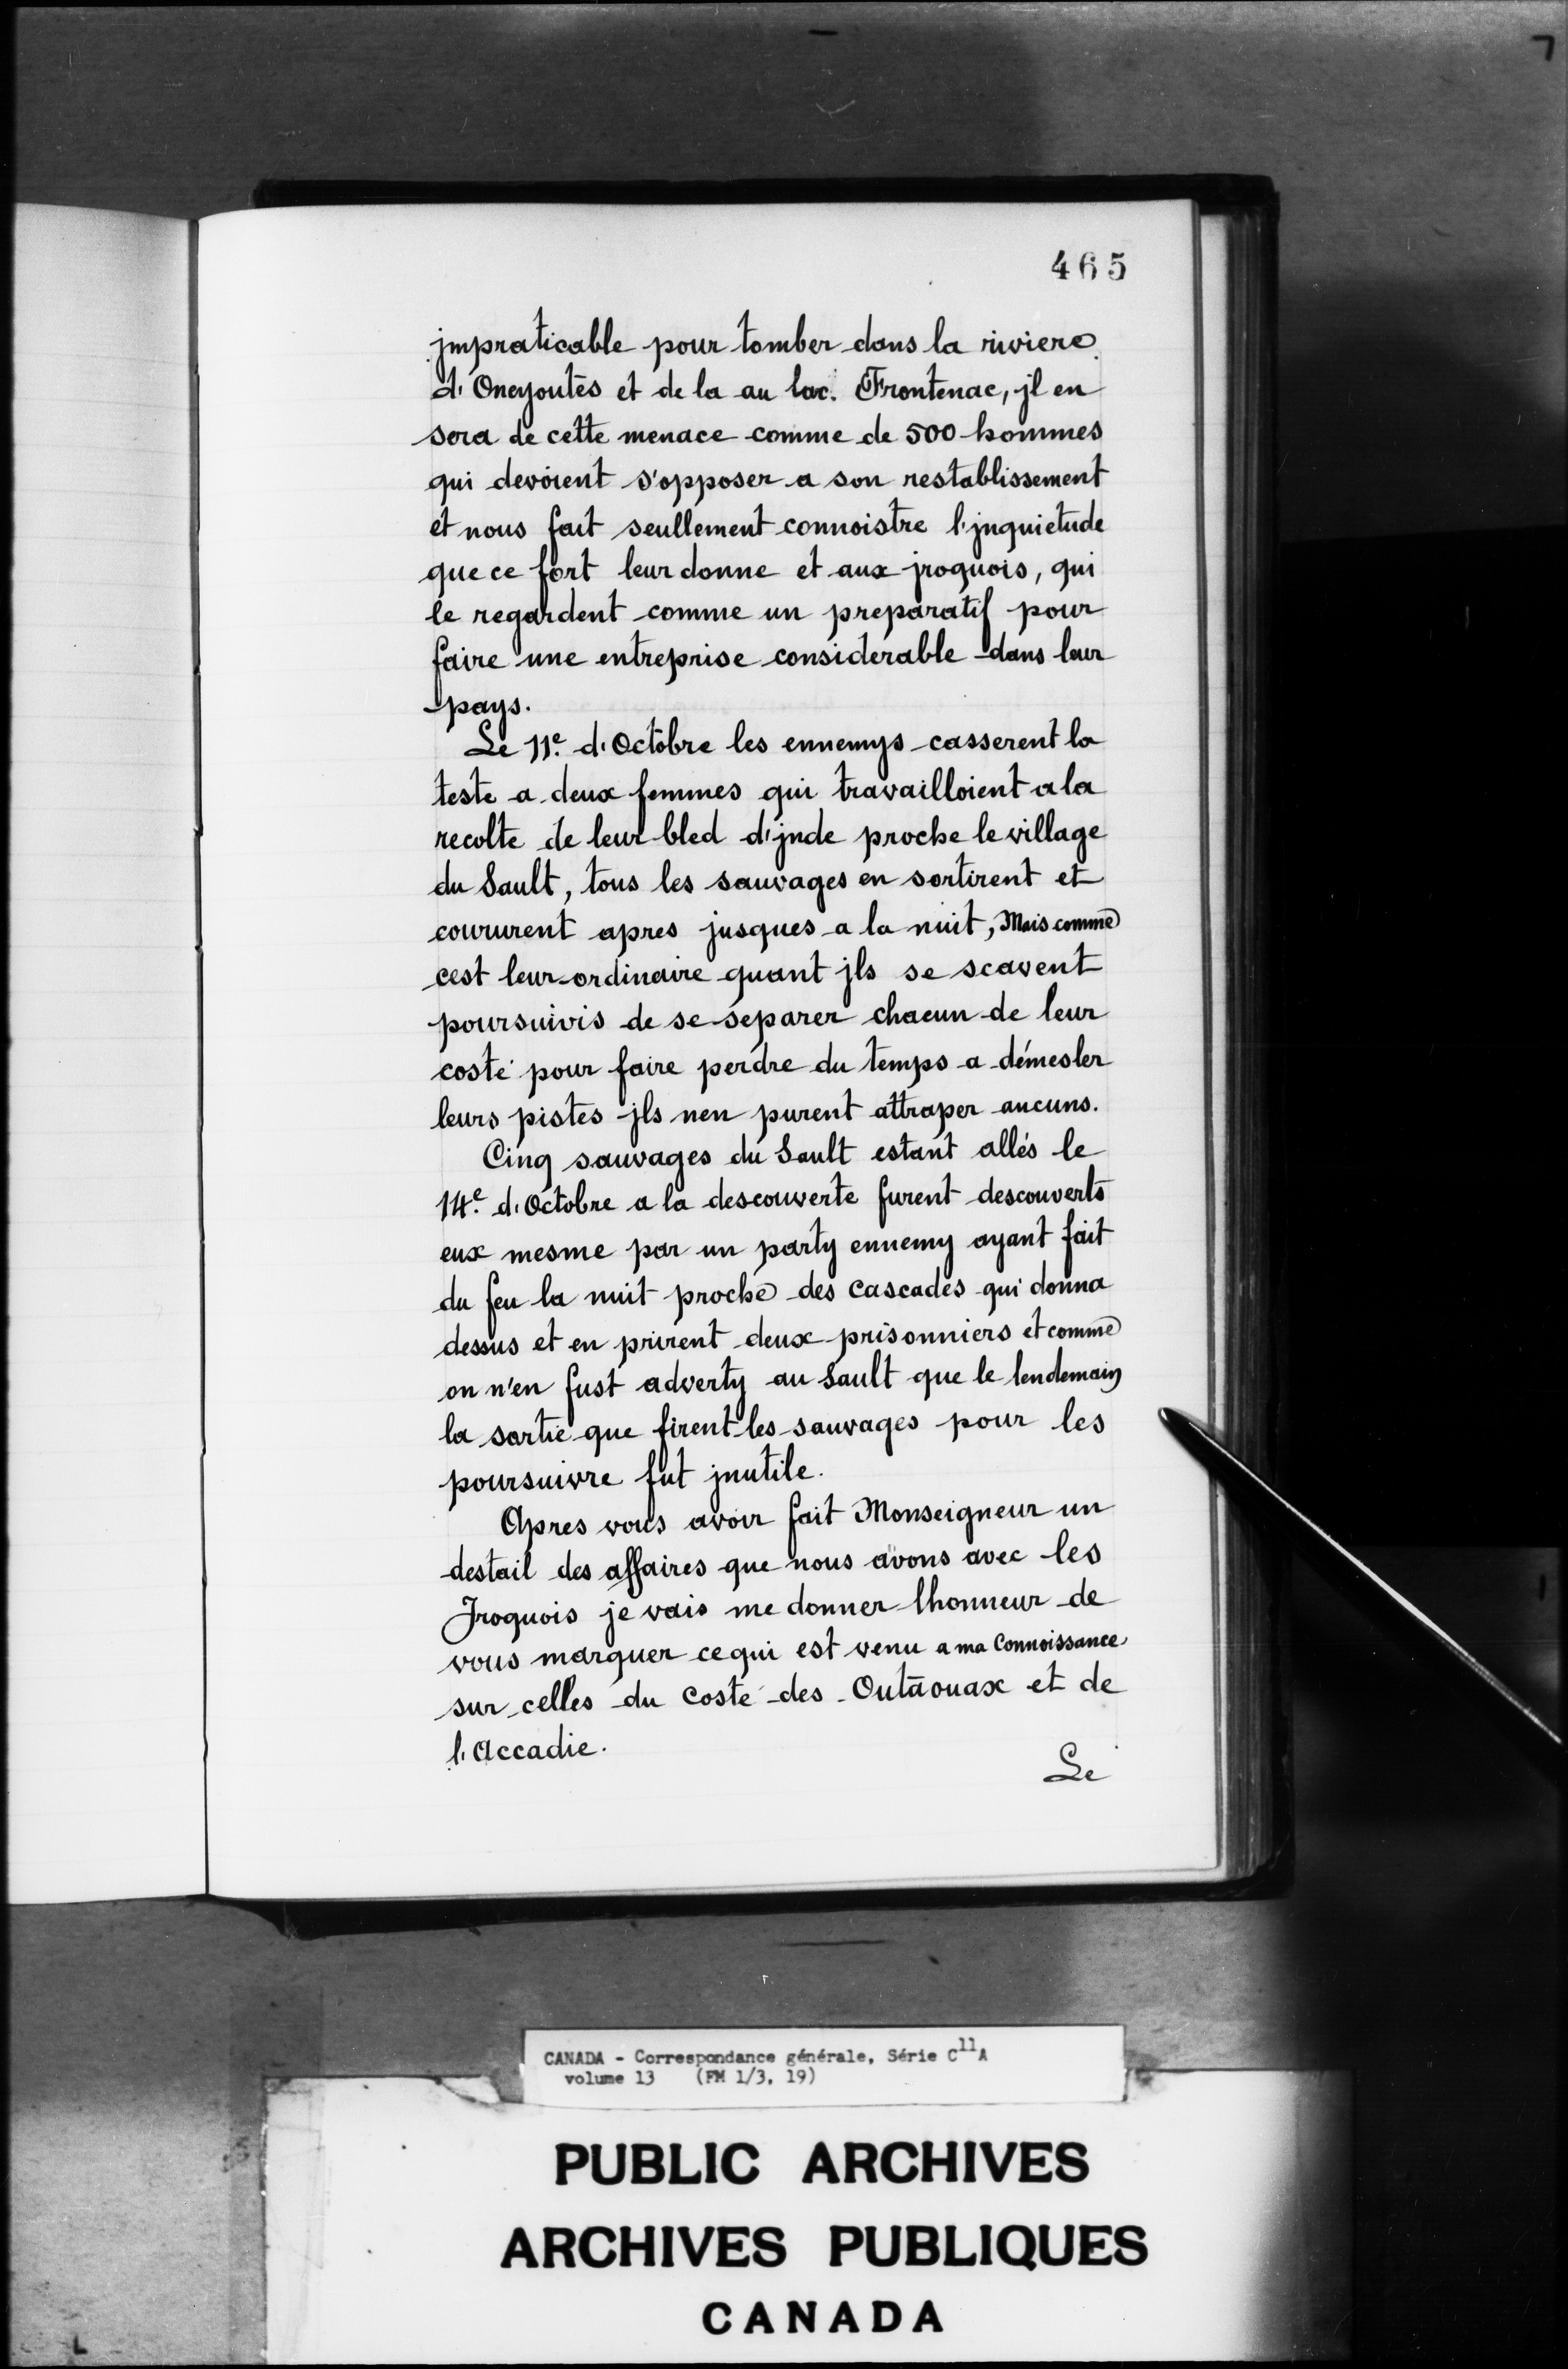 465
jmpraticable pour tomber dans la riviere
d'Oneyoutes et de la au lac. Frontenac, jl en
sera de cette menace comme de 500 hommes
qui devoient s'opposer a son restablissement
et nous fait seullement connoistre l'jnquietude
que ce fort leur donne et aux jroquois, qui
le regardent comme un preparatif pour
faire une entreprise considerable dans leur
pays.
Le 11e. d'Octobre les ennemys casserent la
teste a deux femmes qui travailloient a la
recolte de leur bled d'jnde proche le village
du Sault, tous les sauvages en sortirent et
coururent apres jusques a la nuit, Mais comme
cest leur ordinaire quant jls se scavent
poursuivis de se separer chacun de leur
costé pour faire perdre du temps a démesler
leurs pistes jls nen purent attraper aucuns.
Cinq sauvages du Sault estant allés le
14e. d'Octobre a la descouverte furent descouverts
eux mesme par un party ennemy ayant fait
du feu la nuit proche des cascades qui donna
dessus et en prirent deux prisonniers et comme
on n'en fust adverty au Sault que le lendemain
la sortie que firent les sauvages pour les
poursuivre fut jnutile.
Apres vous avoir fait Monseigneur un
destail des affaires que nous avons avec les
Jroquois je vais me donner lhonneur de
vous marquer ce qui est venu a ma Connoissance
sur celles du Costé des Outaouax et de
l'Accadie.
Le
CANADA - Correspondance générale, Série C11A
volume 13 (FM 1/3, 19)
PUBLIC ARCHIVES
ARCHIVES PUBLIQUES
CANADA